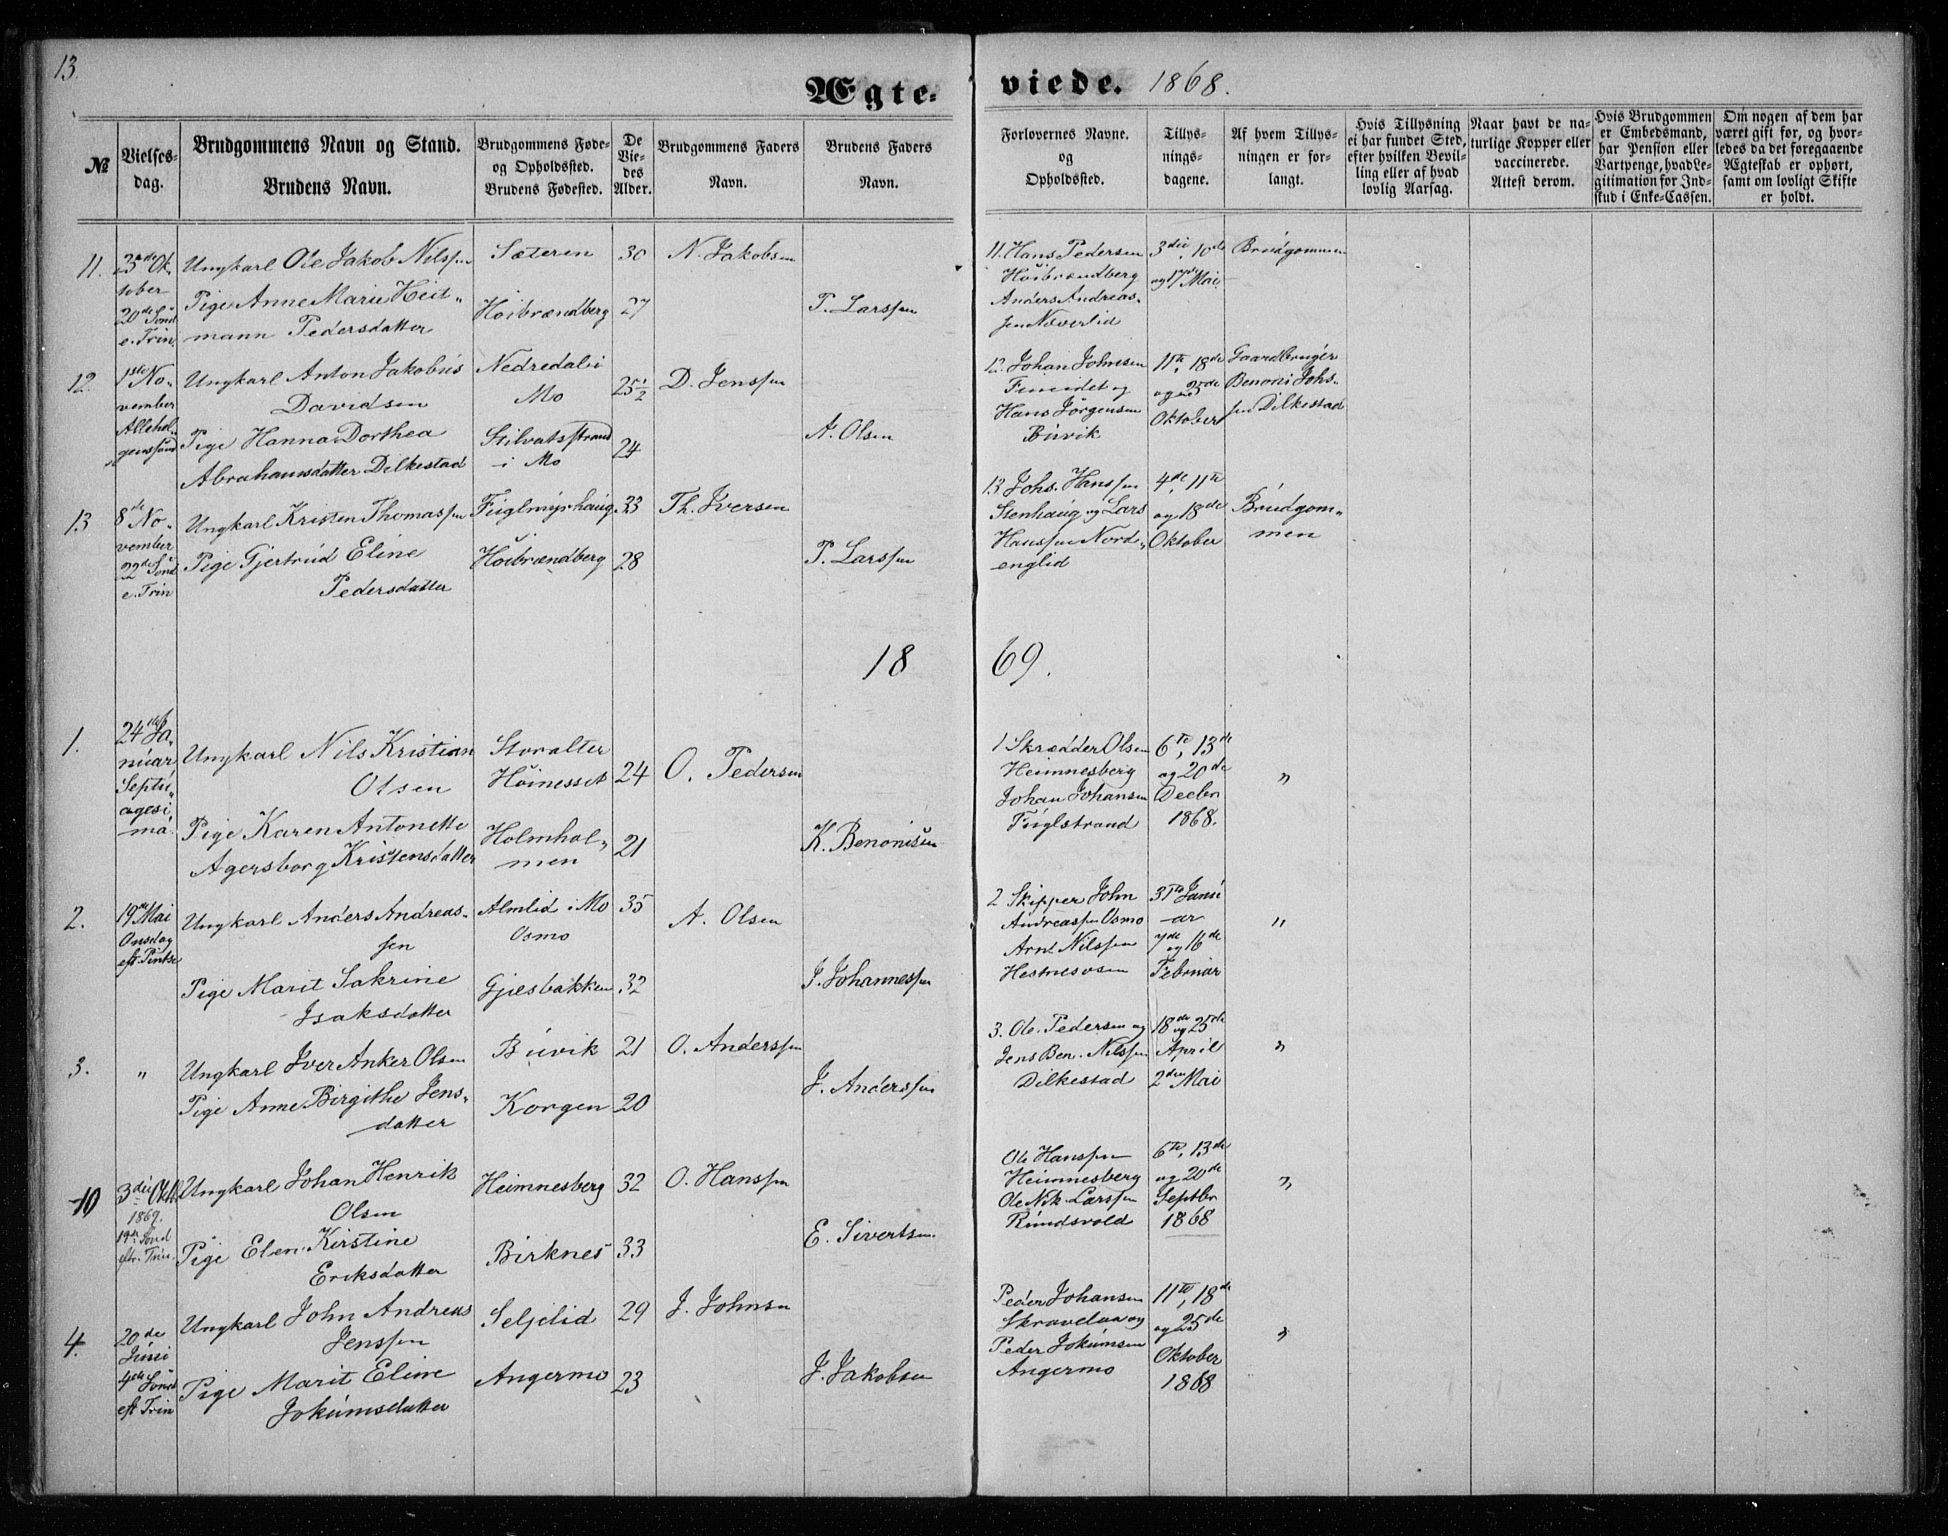 13.
Ægte-
viede. 1868.
№
Vielses-
dag.
Brudgommens Navn og Stand.
Brudens Navn.
Brudgommens Føde-
og Opholdssted.
Brudens Fødested.
De
Vie-
des
Alder.
Brudgommens Faders
Navn.
Brudens Faders
Navn.
Forlovernes Navne.
og
Opholdssted.
Tillys-
nings-
dagene.
Af hvem Tillys-
ningen er for-
langt.
Hvis Tillysning
ei har fundet Sted,
efter hvilken Bevil-
ling eller af hvad
lovlig Aarsag.
Naar havt de na-
turlige Kopper eller
vaccinerede.
Attest derom.
Hvis Brudgommen
er Embedsmand,
har Pension eller
Vartpenge, hvad Le-
gitimation for Ind-
skud i Enke-Cassen.
Om nogen af dem har
været gift før, og hvor-
ledes da det foregaaende
Ægteskab er ophørt,
samt om lovligt Skifte
er holdt.
11.
25de Ok-
tober
20de Sönd
e. Trin.
Ungkarl Ole Jakob Nilssen
Pige Anne Marie Heit-
mann Pedersdatter
Sæteren
Höibrændberg
30
27
N. Jakobsen
P. Larssen
11. Hans Pedersen
Höibrændberg
Anders Andreas-
sen Næverlid
3die, 10de
og 17de Mai
Brudgommen
12.
1ste No-
vember
Allehel-
genssönd
Ungkarl Anton Jakobus
Davidsen
Pige Hanna Dorthea
Abrahamsdatter Dilkestad
Nedredal i
Mo
Stilvatsstrand
i Mo
25 1/2
24
D. Jenssen
A. Olsen
12. Johan Johnsen
Fineidet og
Hans Jörgensen
Buvik
11te, 18de
og 25de
Oktober
Gaardbruger
Benoni Johs-
sen Dilkestad
13
8de No-
vember
22de Sönd
e. Trin
Ungkarl Kristen Thomassen
Pige Gjertrud Eline
Pedersdatter
Fuglmyrhaug
Höibrændberg
33
28
Th. Iversen
P. Larssen
13 Johs. Hanssen
Stenhaug og Lars
Hanssen Nord-
englid
4de, 11te
og 18de
Oktober
Brudgom-
men
18
69.
1.
24de Ja-
nuar
Septu-
agesi-
ma.
Ungkarl Nils Kristian
Olsen
Pige Karen Antonette
Agersborg Kristensdatter
Storalter
Höinesset
Holmhol-
men
24
21
O. Pedersen
K. Benonisen
1 Skrædder Olsen
Heimnesberg
Johan Johansen
Fuglstrand
6te, 13de
og 20de
Decbr
1868.
"
2.
19de Mai
Onsdag
eft. Pintse
Ungkarl Anders Andreas-
sen
Pige Marit Sakrine
Isaksdatter
Almlid i Mo
Osmo
Gjesbakken
35
32
A. Olsen
J. Johannessen
2 Skipper John
Andreassen Osmo
Arnt Nilssen
Hestnesosen
31te Janu
ar
7de og 16de
Februar
"
3.
"
Ungkarl Iver Anker Olsen
Pige Anne Birgithe Jens-
datter
Buvik
Korgen
21
20
O. Anderssen
J. Anderssen
3. Ole Pedersen og
Jens Ben. Nilssen
Dilkestad
18de og 25de
April
2den Mai
"
10
3die Oktb
1869.
19de Sönd
eftr. Trin.
Ungkarl Johan Henrik
Olsen
Pige Elen Kirstine
Eriksdatter
Heimnesberg
Birknes
32
33
O. Hanssen
E. Sivertsen.
Ole Hanssen
Heimnesberg
Ole Nik. Larssen
Rundsvold
6te, 13de
og 20de
Septbr
1868
"
4.
20de
Juni
4de Sönd
eft Trin
Ungkarl John Andreas
Jenssen
Pige Marit Eline
Jokumsdatter
Seljelid
Angermo
29
23
J. Johnsen
J. Jakobsen
Peder Johansen
Skravelaa og
Peder Jokumsen
Angermo
11te, 18de
og 25de
Oktober
1868
"